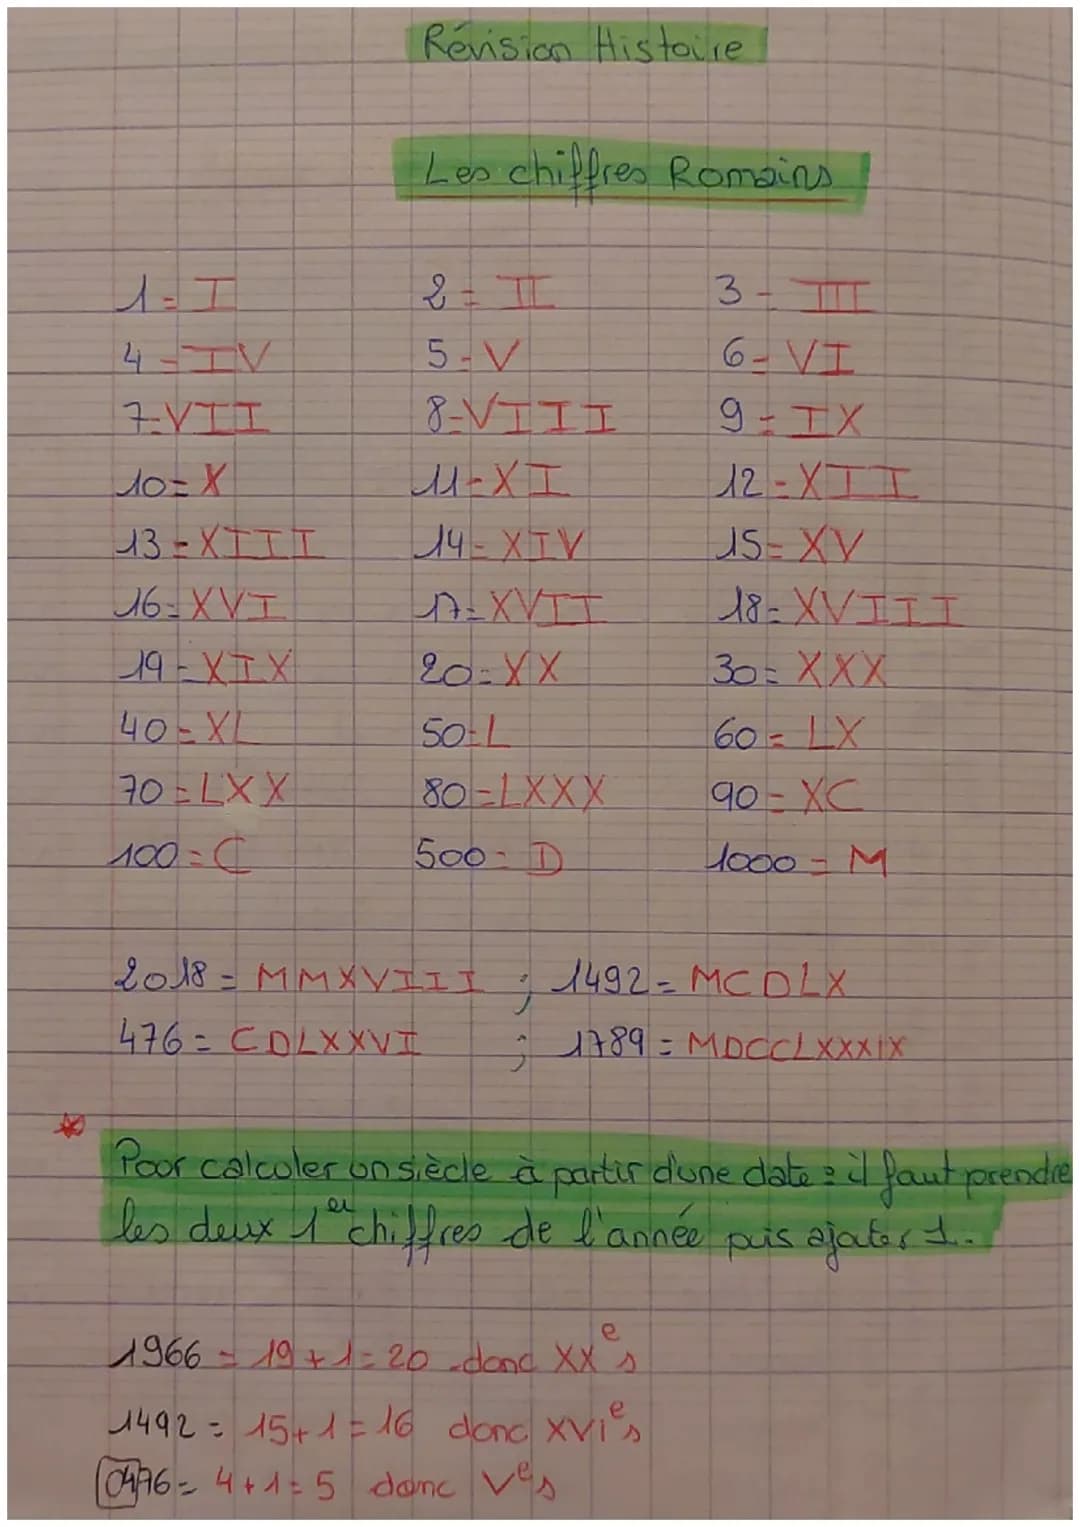 Révision Histoire
Les chiffres Romains
1 = I 2 = II 3 - III
4 = IV 5 - V 6 = VI
7 = VII 8 - VIII 9 = IX
10 = X 11 - XI 12 - XII
13 - XIII 14 - XIV 15 = XV
16 = XVI 17 = XVII 18 = XVIII
19 - XIX 20 = XX 30 = XXX
40 = XL 50 = L 60 = LX
70 = LXX 80 = LXXX 90 = XC
100 = C 500 = D 1000 = M
2018 = MMXVIII ; 1492 = MCDLX
476 = CDLXXVI ; 1789 = MDCCLXXXIX
Pour calculer un siècle à partir d'une date : il faut prendre
les deux 1er chiffres de l'année puis ajouter 1.
1966 = 19 + 1 = 20 donc XXe s
1492 = 15 + 1 = 16 donc XVIe s
0476 = 4 + 1 = 5 donc Ve s